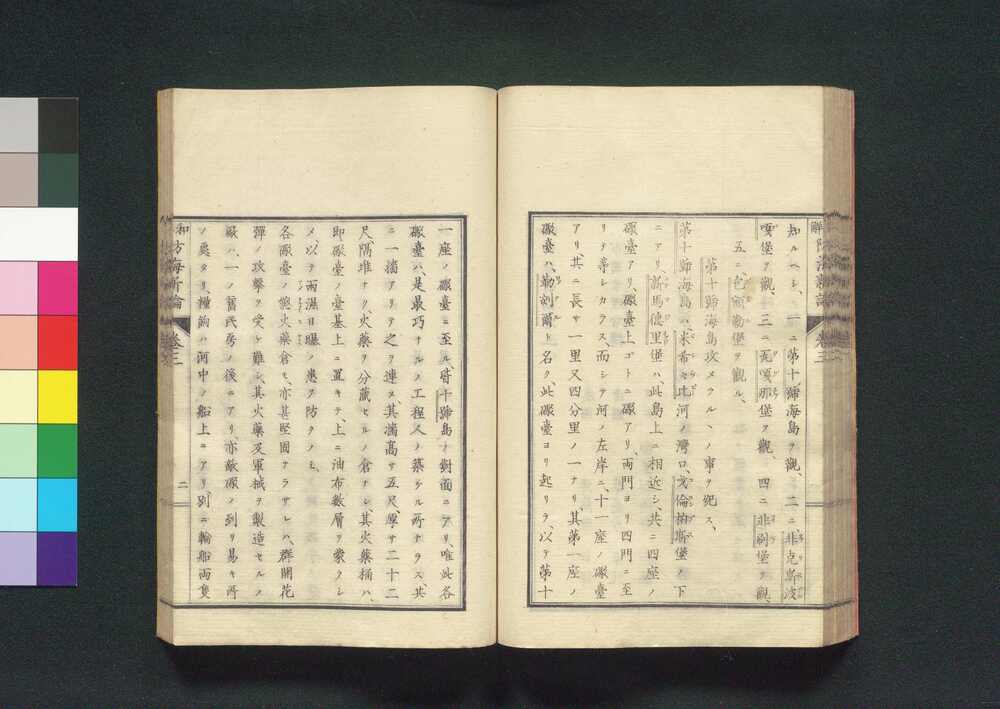 知ルヘシ、一ニ第十號海島ヲ觀、二ニ非克斯波
嘎堡ヲ觀、三ニ瓦嘎那堡ヲ觀、四ニ非刷堡ヲ觀、
五ニ色爾勒堡ヲ觀ル、
第十號海島攻メラルヽノ事ヲ死ス、
第十號海島ハ、米希セ比河ノ灣口、戈倫拍斯堡ノ下
ニアリ、新馬德里堡ハ、此島上ニ相近シ、共ニ四座ノ
礮臺アリ、礮臺上コトニ礮アリ、兩門ヨリ四門ニ至
リテ等シカラス、而シテ河ノ左岸ニ、十一座ノ礮臺
アリ、其ニ長サ一里又四分里ノ一ナリ、其第一座ノ
礮臺ハ、勒剖爾ト名ク、此礮臺ヨリ起リテ、以テ第十
一座ノ礮臺ニ至ル、皆十號島ノ對面ニアリ、唯此各
礮臺ハ、是最巧ナルノ工程人ノ築ケル所ナラス、其
ニ一牆アリテ之ヲ連ヌ、其牆高サ五尺、厚サ二十二
尺、隔堆ナク、火藥ヲ分藏セルノ倉ナシ、其火藥桶ハ、
即礮臺ノ臺基上ニ置キテ、上ニ油布數層ヲ蒙ラシ
メ、以テ雨濕日曝ノ患ヲ防クノミ、
各礮臺ノ火藥倉モ、亦甚堅固ナラサレハ、群開花
彈ノ攻擊ヲ受ケ難シ、其火藥及軍械ヲ製造セルノ
厰ハ、一ノ舊民房ノ後ニアリ、亦敵礮ノ到リ易キ所
ノ處タリ、糧餉ハ河中ノ船上ニアリ、別ニ輪船兩隻
防海新論 卷三
二